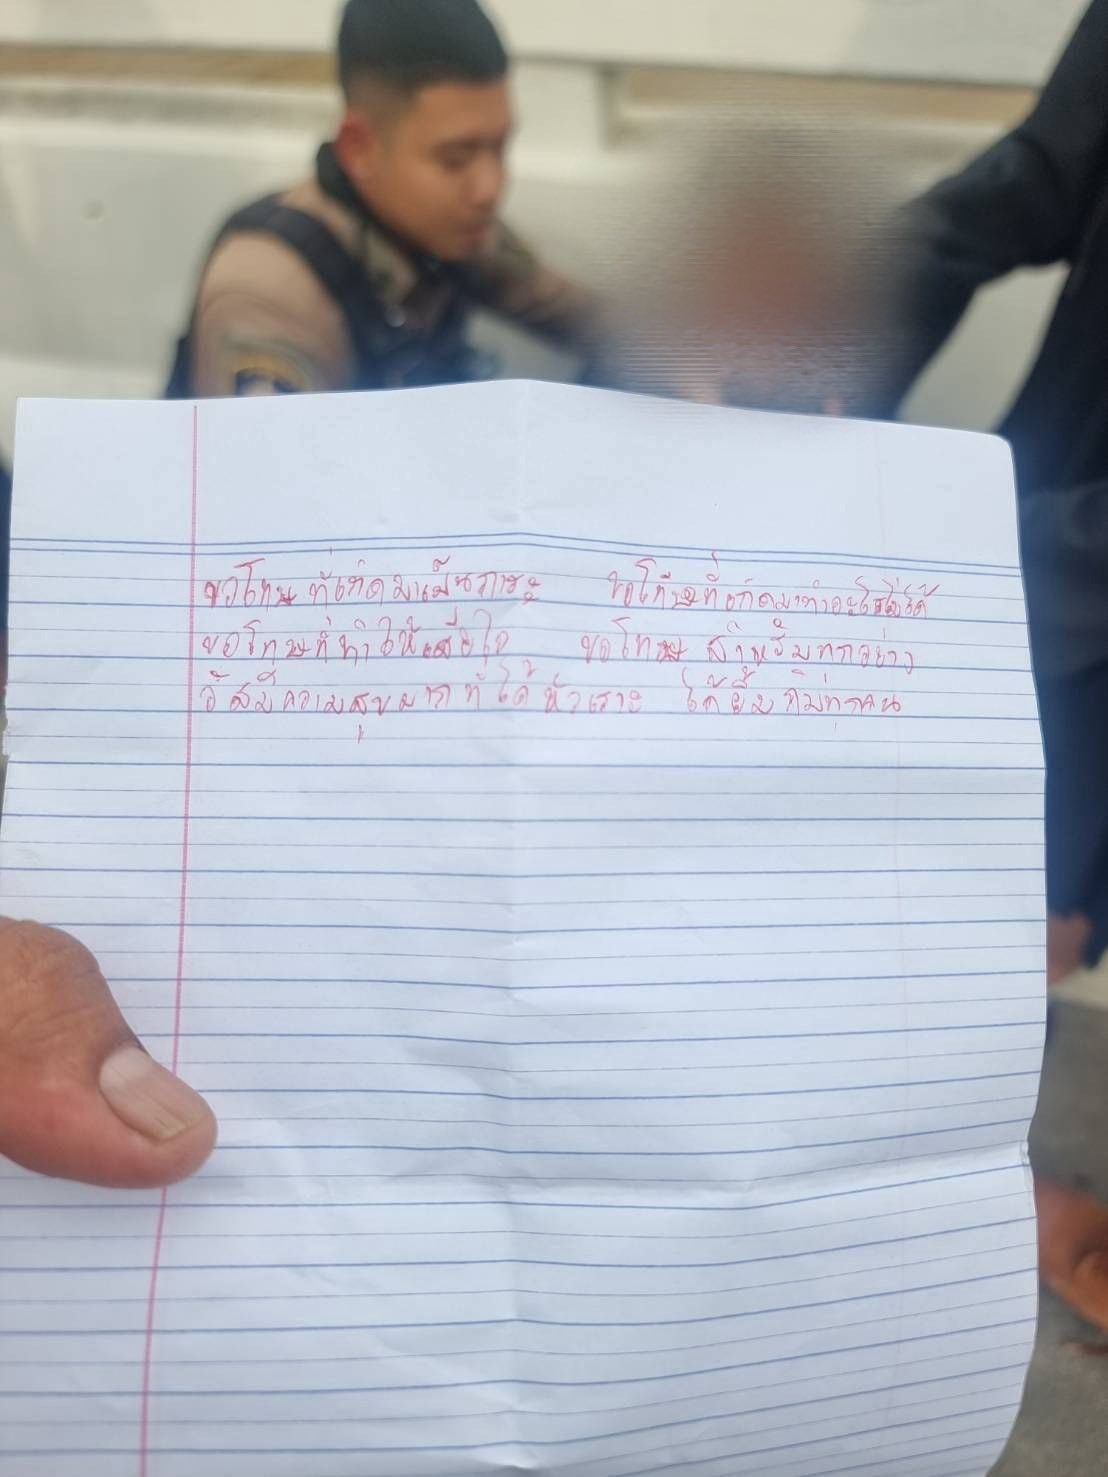 ขอโทษที่เกิดมาเป็นภาระ ขอโทษที่เกิดมาทำอะไรไม่ได้
ขอโทษที่ทำให้เสียใจ ขอโทษ สำหรับทุกอย่าง
มีความสุขมากที่ได้หัวเราะ ได้ยิ้ม กับทุกคน